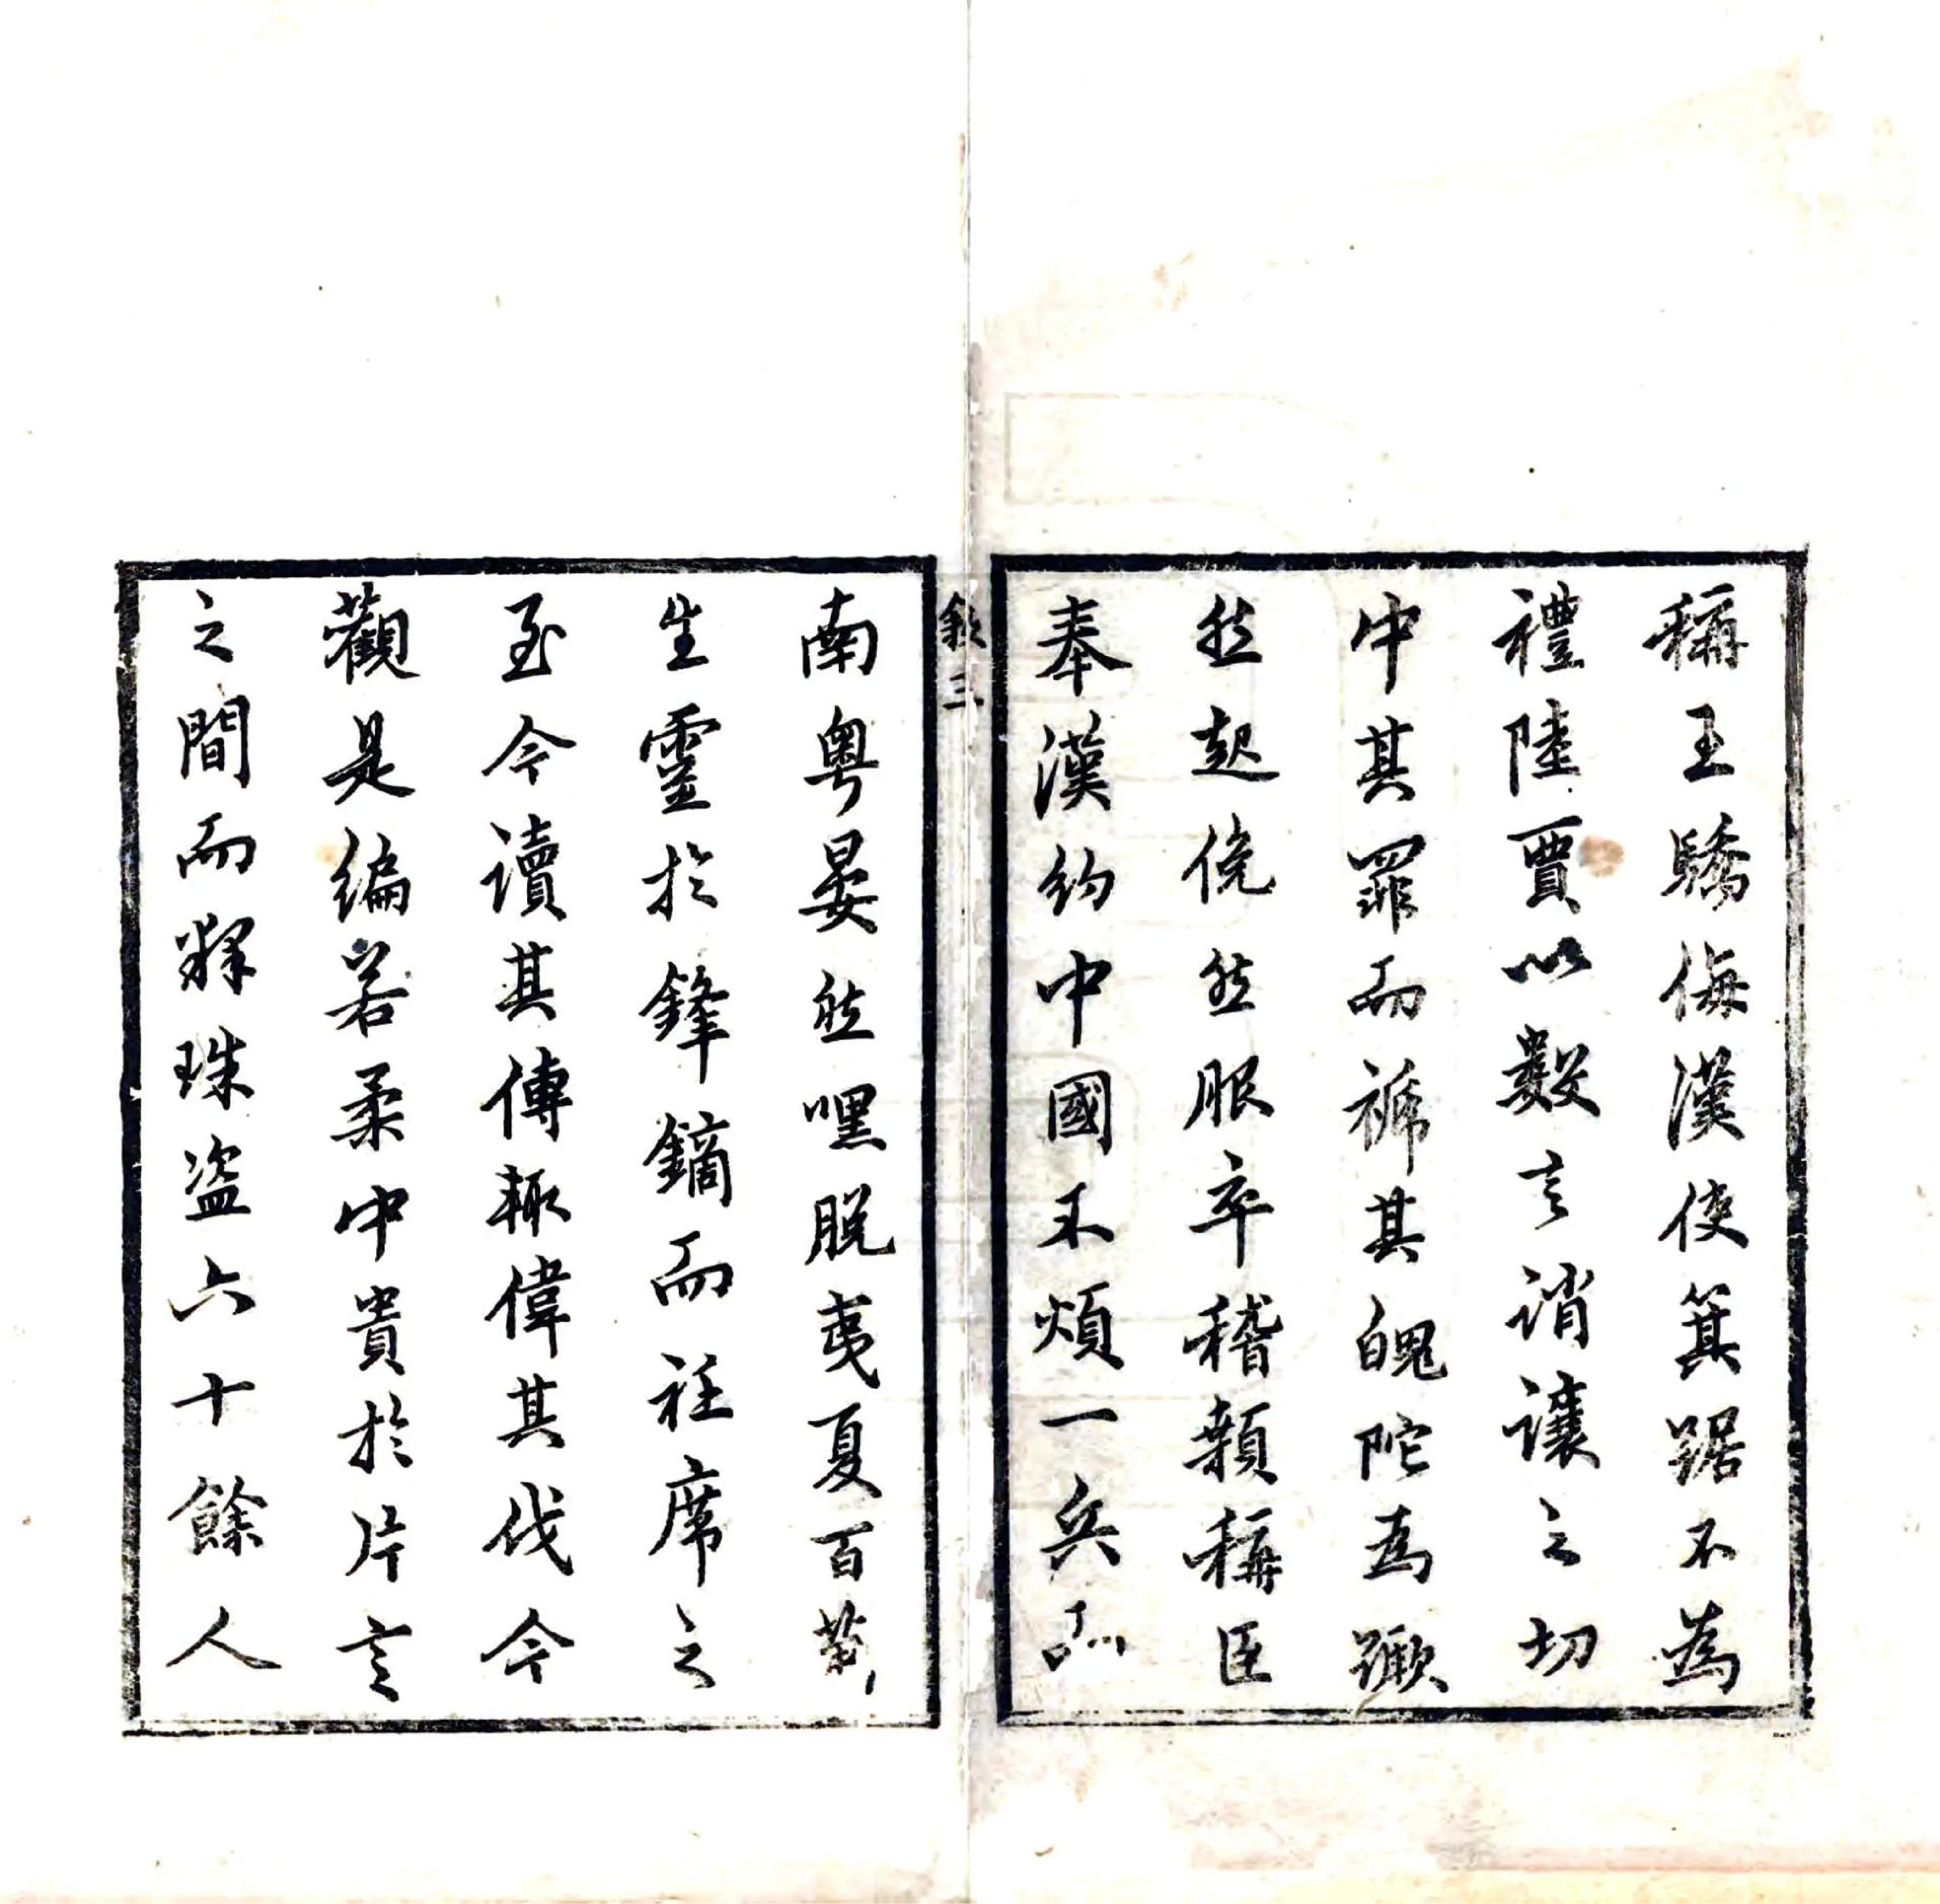 稱王驕侮漢使箕踞不為
禮陸賈以數言誚讓之切
中其罪而褫其魄陀為蹶
然起俛然服卒稽顙稱臣
奉漢約中國不煩一兵而
敘三
南粵晏然嘿脫夷夏百萬
生靈於鋒鏑而袵席之
至今讀其傳輒偉其伐今
觀是編若柔中貴於片言
之間而釋珠盜六十餘人